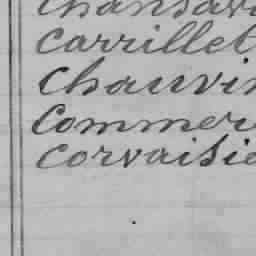 Chansav
Carrillet
Chauvin
Commer
Corvaisie